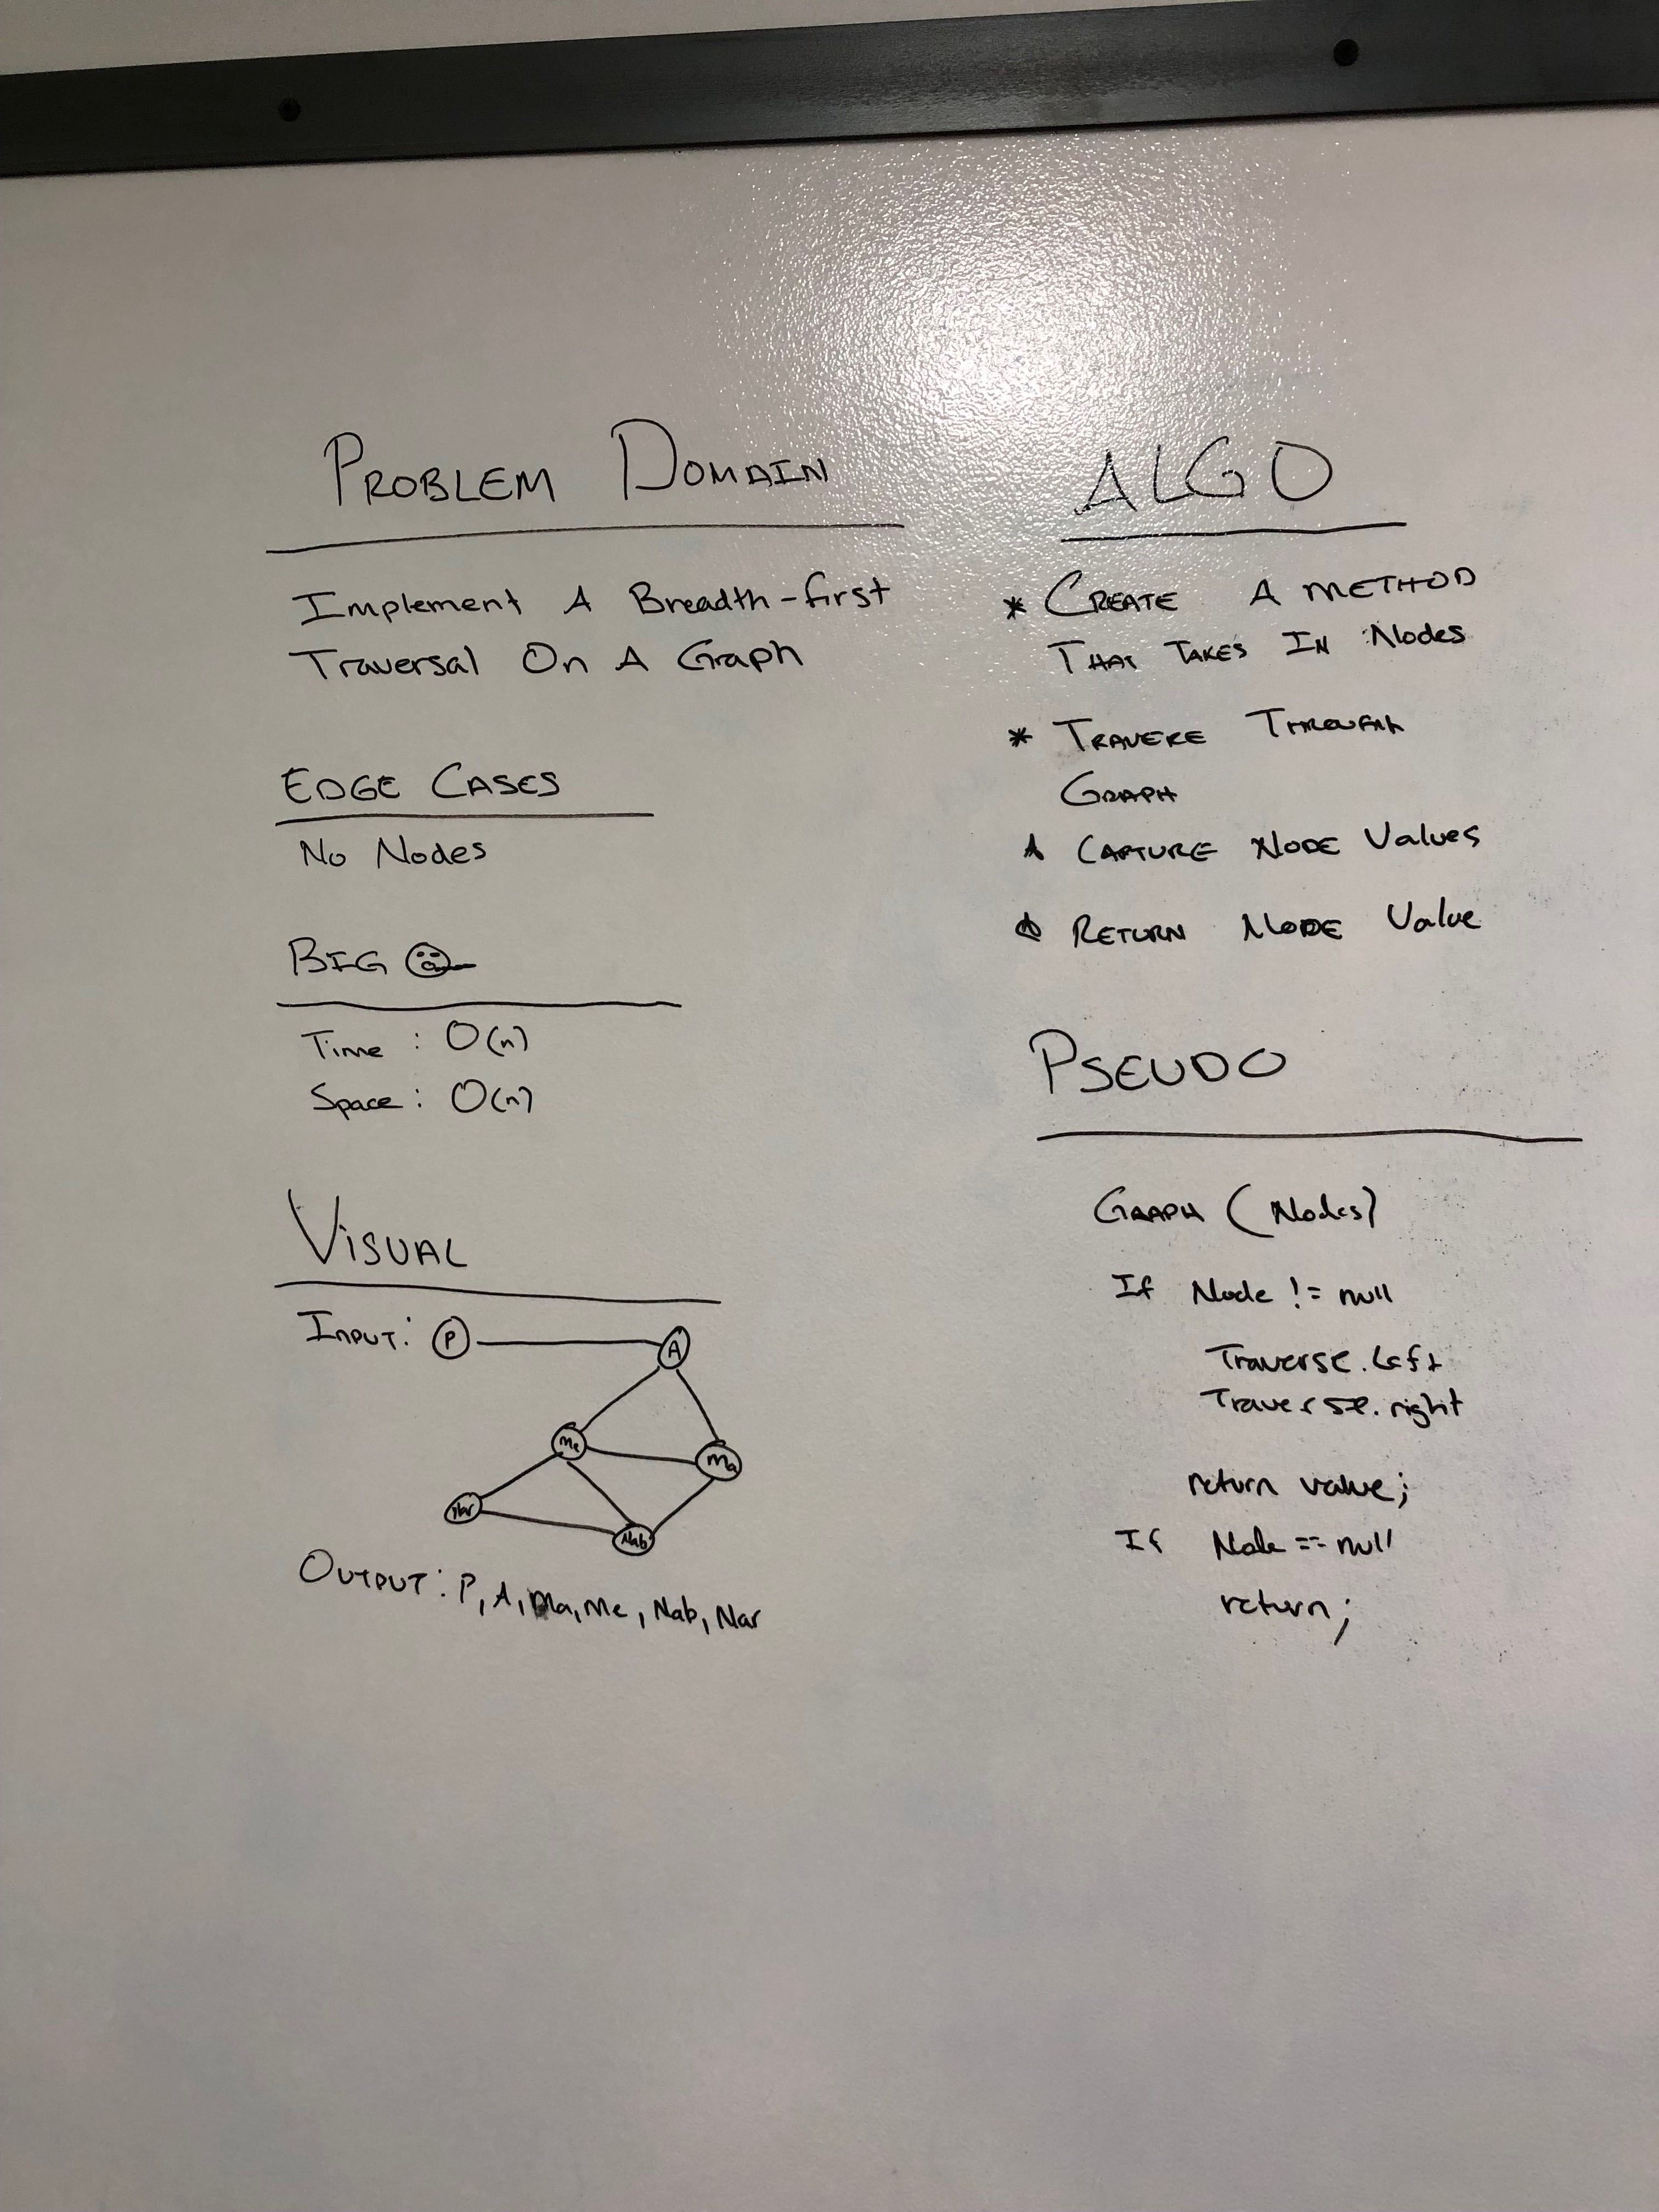 PROBLEM DOMAIN
Implement A Breadth-first
Traversal On A Graph
EDGE CASES
No Nodes
BIG
Time : O(n)
Space : O(n)
VISUAL
INPUT:
P
A
Me
Ma
Nar
Nab
OUTPUT: P, A, Ma, Me, Nab, Nar
ALGO
* CREATE A METHOD
THAT TAKES IN Nodes
* TRAVERE THROUGH
GRAPH
* CAPTURE NODE Values
RETURN NODE Value
PSEUDO
GRAPH (Nodes)
If Node != null
Traverse.left
Traverse.right
return value;
If Node == null
return;